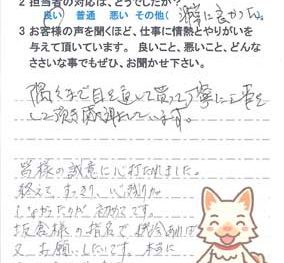 2 担当者の対応は、どうでしたか?
良い 普通 悪い その他( 非常に良かった。
3 お客様の声を聞くほど、仕事に情熱とやりがいを
与えて頂いています。 良いこと、悪いこと、どんな
ささいな事でもぜひ、お聞かせ下さい。
隅々まで目を通して 丁寧に工事を
して頂き感謝しています。
皆様の誠意に心打たれました。
終えて、すっきり、心残りが
しなかったが 初めてです。
様の指名で
又、お願いしたいです。本当に